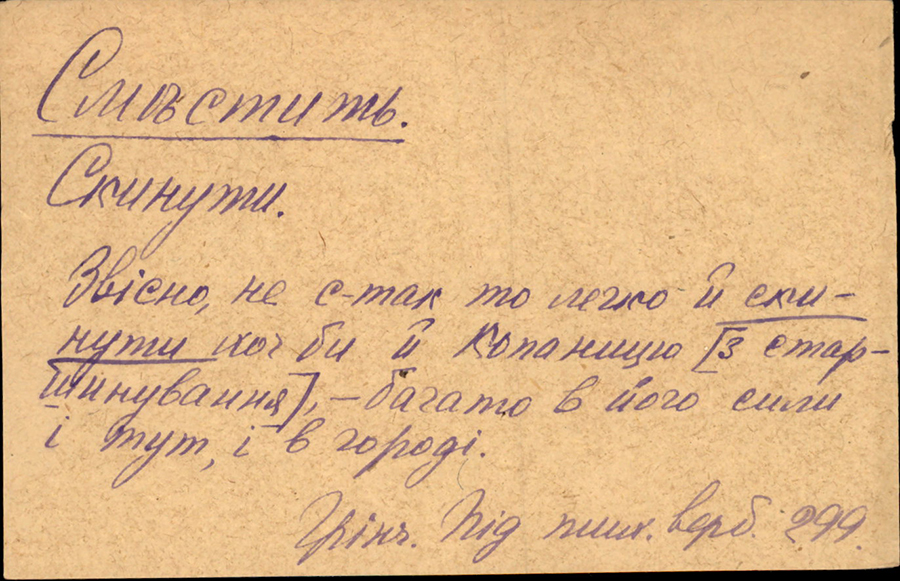 Смѣстить.
Скинути.
Звісно, не с-так то легко й ски-
нути хоч би й Копаницю [з стар-
шинування], – багато в його сили
і тут, і в городі.
Грінч. Під тих. верб. 299.